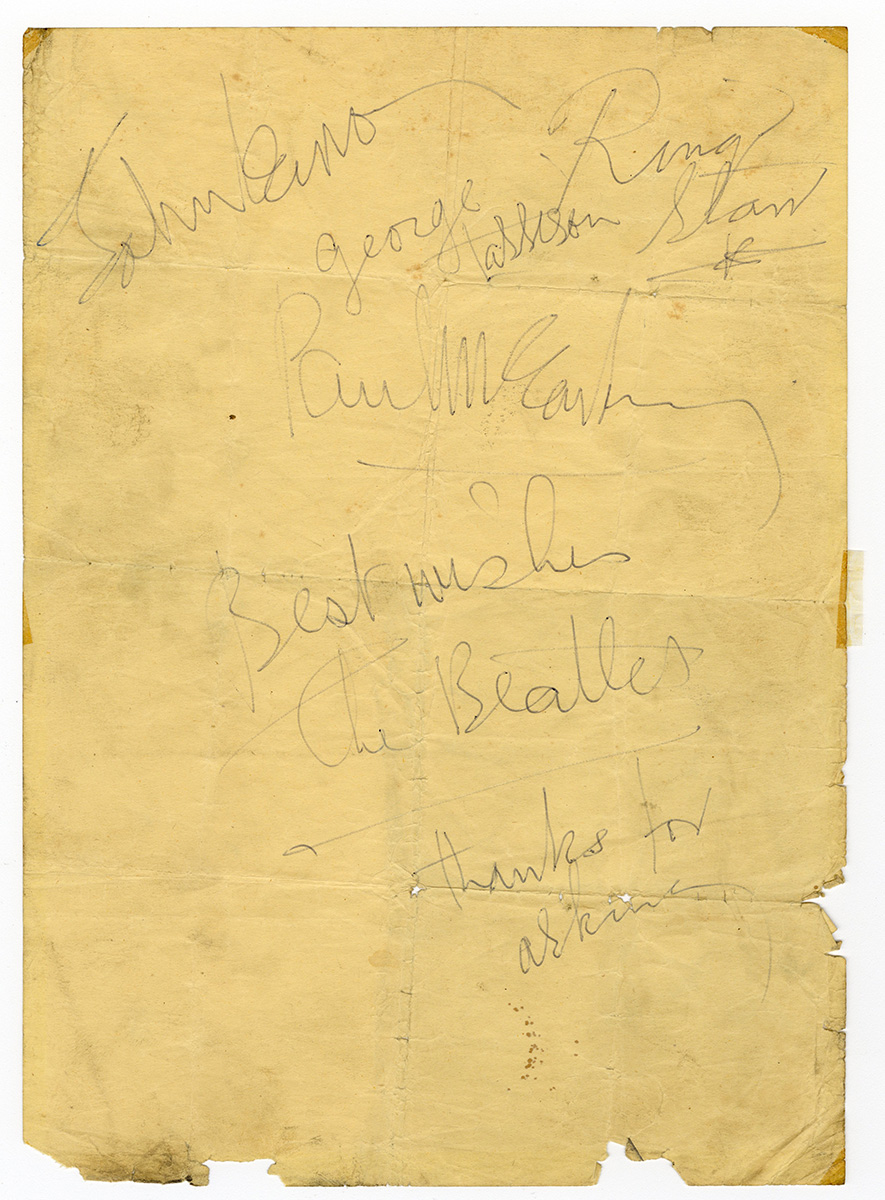 John Lennon
george Harrison
Ringo Starr
Paul McCartney
Best wishes
the Beatles
thanks for
asking